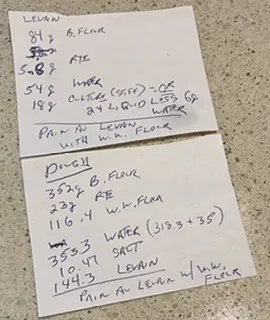 LEVAIN
84 g B. FLOUR
5.8 g RYE
54 g WATER
18 g CULTURE (STIFF) = OR
24 LIQUID LESS 6g
WATER
PAIN AU LEVAIN
WITH W.W. FLOUR
DOUGH
352g B. FLOUR
23g RYE
116.4 W.W. FLOUR
353.3 WATER (318.3 + 35)
10.47 SALT
144.3 LEVAIN
PAIN AU LEVAIN W/ W.W.
FLOUR